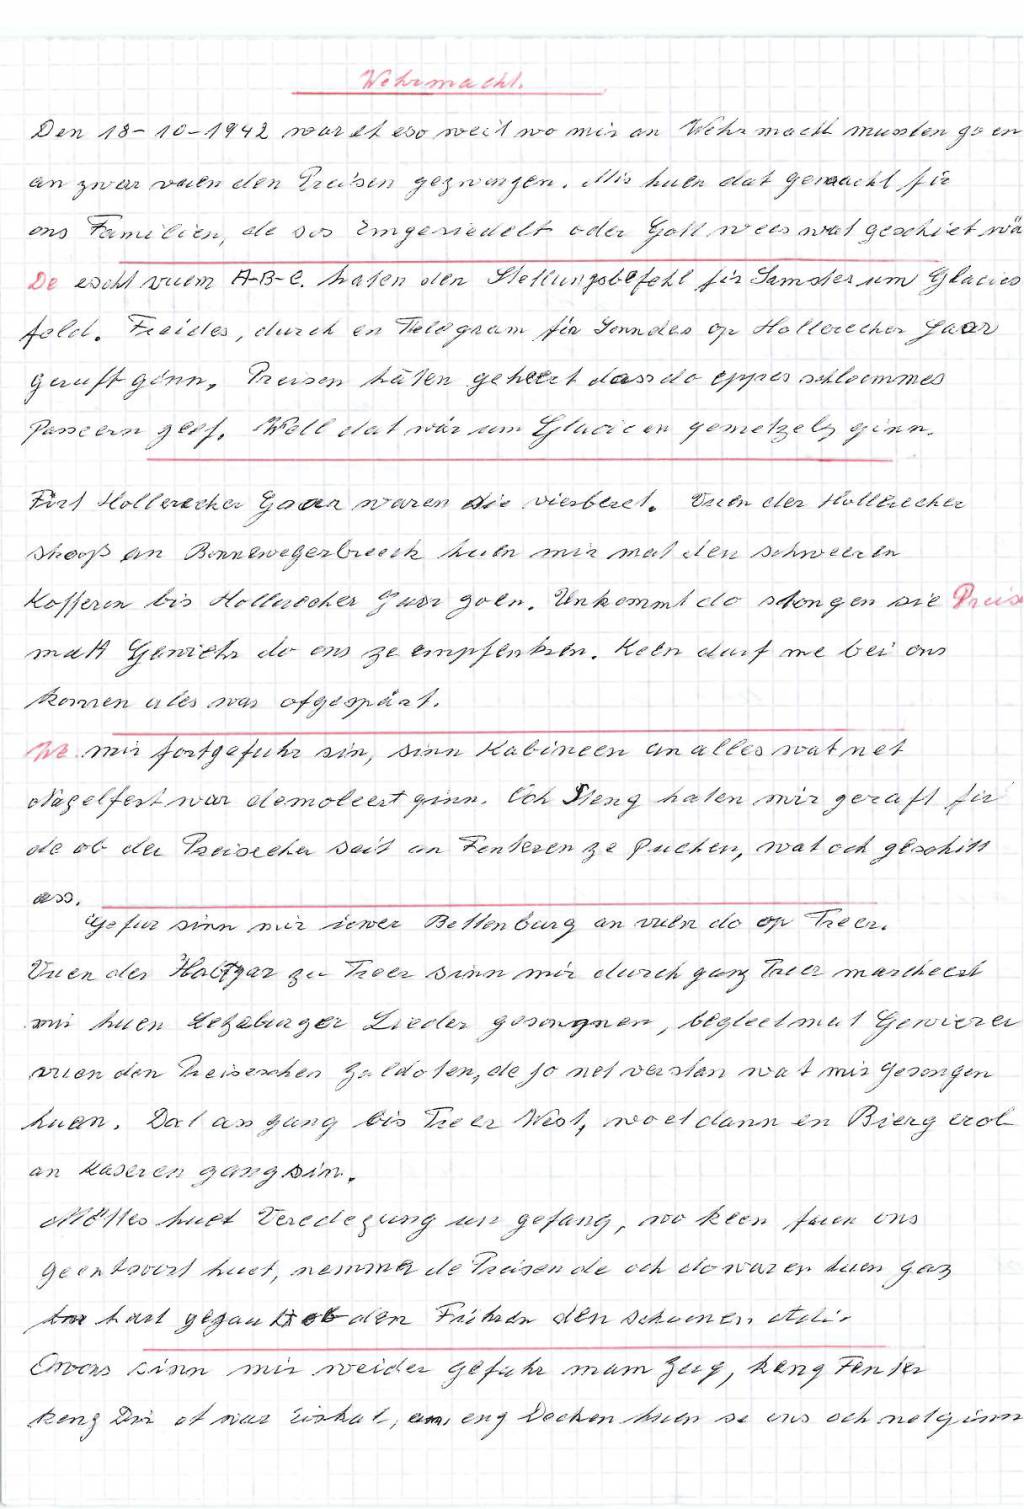 Wehrmacht.
Den 18-10-1942 war et eso weit wo mir an Wehrmacht mussten goen
an zwar vuen den Preisen gezwongen. Mir huen dat gemacht fir
ons Familien, de sos Emgesiedelt oder Gott wees wat geschiet wä
De escht vuem A-B-C. haten den Stellungsbefehl fir Samsten um Glacies
feld. Freides, durch en Telegram fir Sonndes op Hollerecher Gaar
geruft ginn. Preisen häten geheert dass do eppes schlommes
Passeern geef. Well dat wär um Glacie en gemetzels ginn.
Firt Hollerecher Gaar waren die vierbereet. Vuen der Hollerecher
strooss an Bonnewegerbreeck huen mir mat den schweeren
Kofferen bis Hollerecher Gaar goen. Unkommt do stongen sie Preise
matt Gewiehr do ons ze empfenken. Keen durf me bei ons
kommen alles war ofgespärt.
We mir fortgefuhr sin, sinn Kabineen an alles wat net
Nagelfest war demoleert ginn. Och Steng haten mir geraft fir
de ob der Preisecher seit an Fenteren ze puchen, wat och geschitt
ass.
Gefur sinn mir iewer Bettenburg an vuen do op Treer.
Vuen der Haaptgar zu Treer sinn mir durch ganz Treer marcheert
mir huen Letzeburger Lieder gesongnen, begleet mat Gewierer
vuen den Preiseschen Zaldoten, de jo net verstan wat mir gesongen
huen. Dat ass gang bis Treer West, wo et dann en Bierg erob
an Kaseren gang sin.
Mëttes huet Veredegung un gefang, wo keen fuen ons
geentwort huet, nemmen de Preisen de och do waren huen ganz
hart gegau ob den Führer den schweren
Owors sinn mir weider gefuhr mam Zug, keng Fenster
keng Dir et war Eiskal, eng Decken huen se ons och net ginn